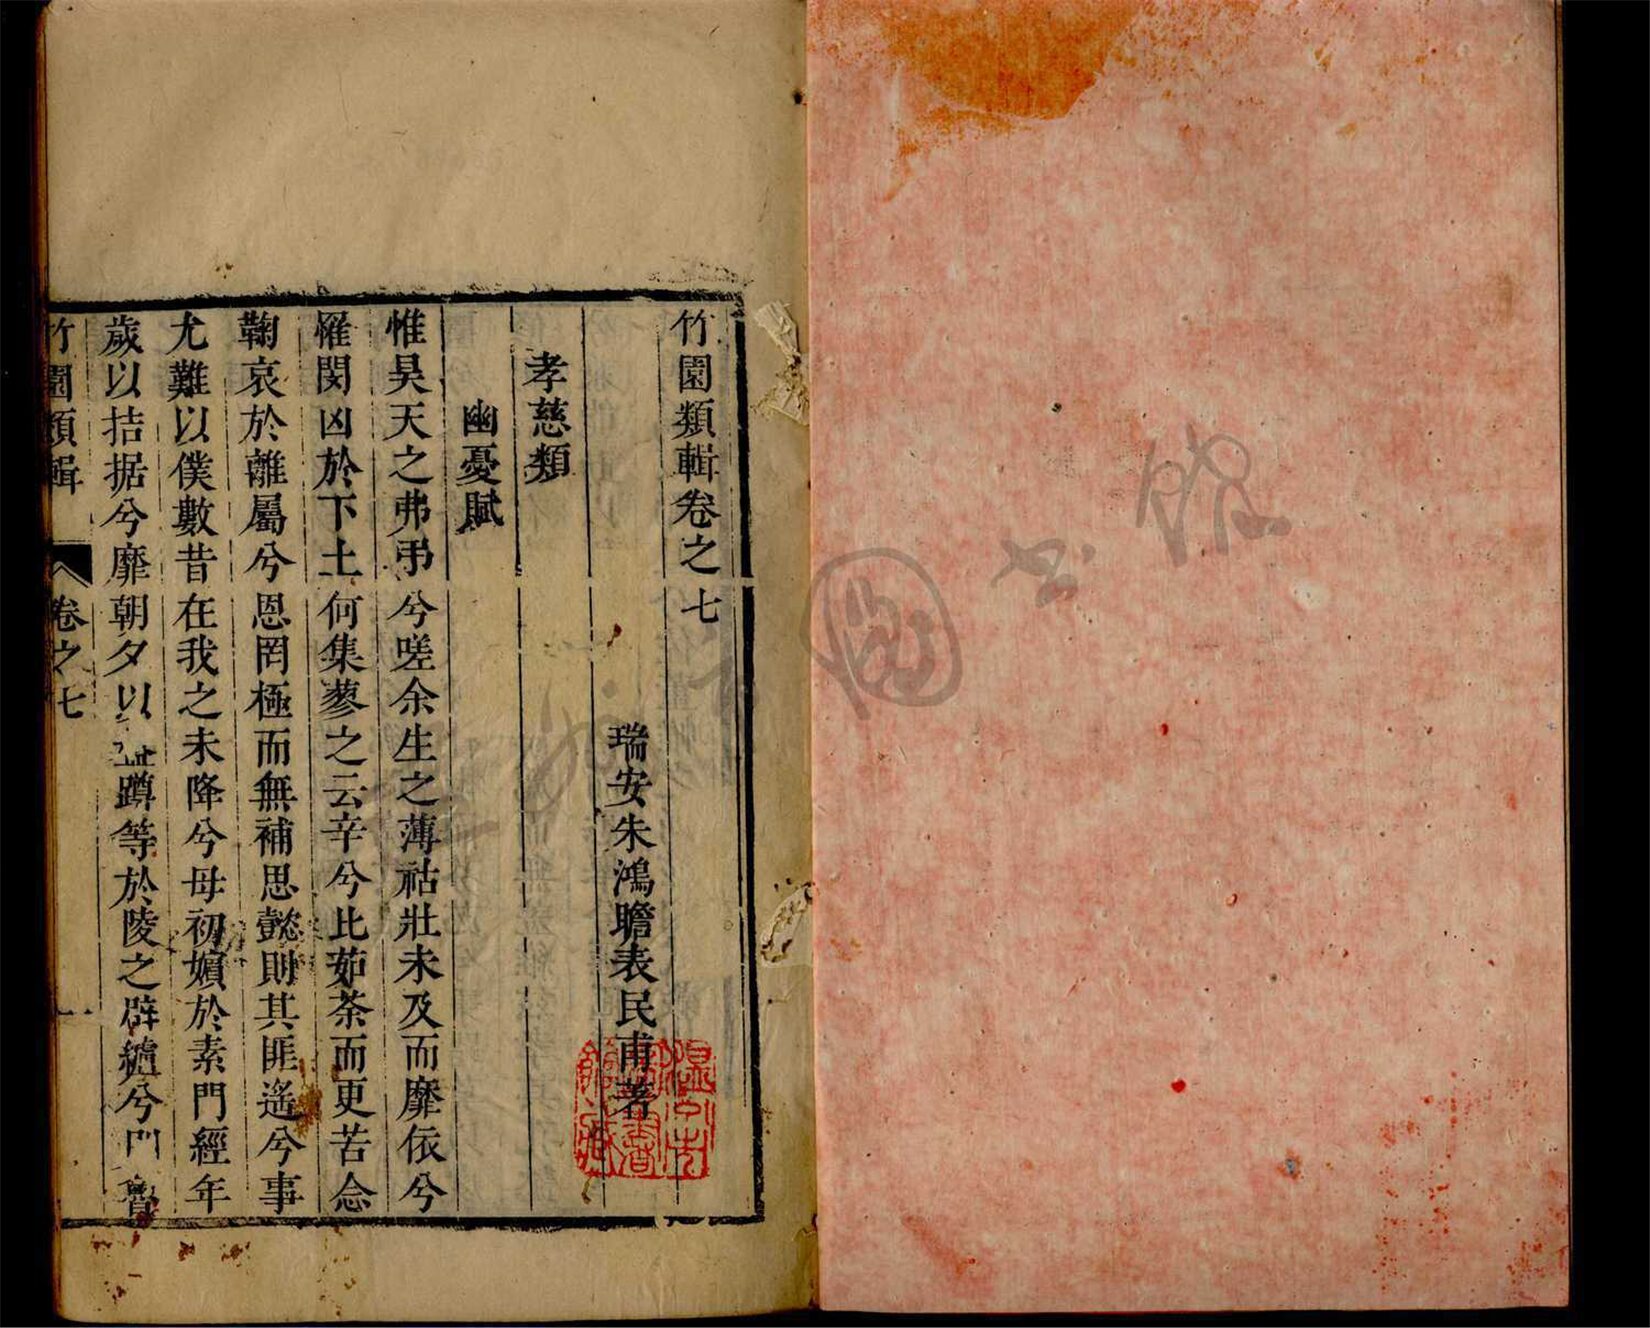 竹園類輯卷之七
瑞安朱鴻瞻表民甫著
孝慈類
幽憂賦
惟昊天之弗弔兮嗟余生之薄祜壯未及而靡依兮
罹閔凶於下土何集蓼之云辛兮比茹荼而更苦念
鞠哀於離屬兮恩罔極而無補思懿則其匪遙兮事
尤難以僕數昔在我之未降兮母初嬪於素門經年
歲以拮据兮靡朝夕以 蹲等於陵之辟纑兮
竹園類輯 卷之七 一